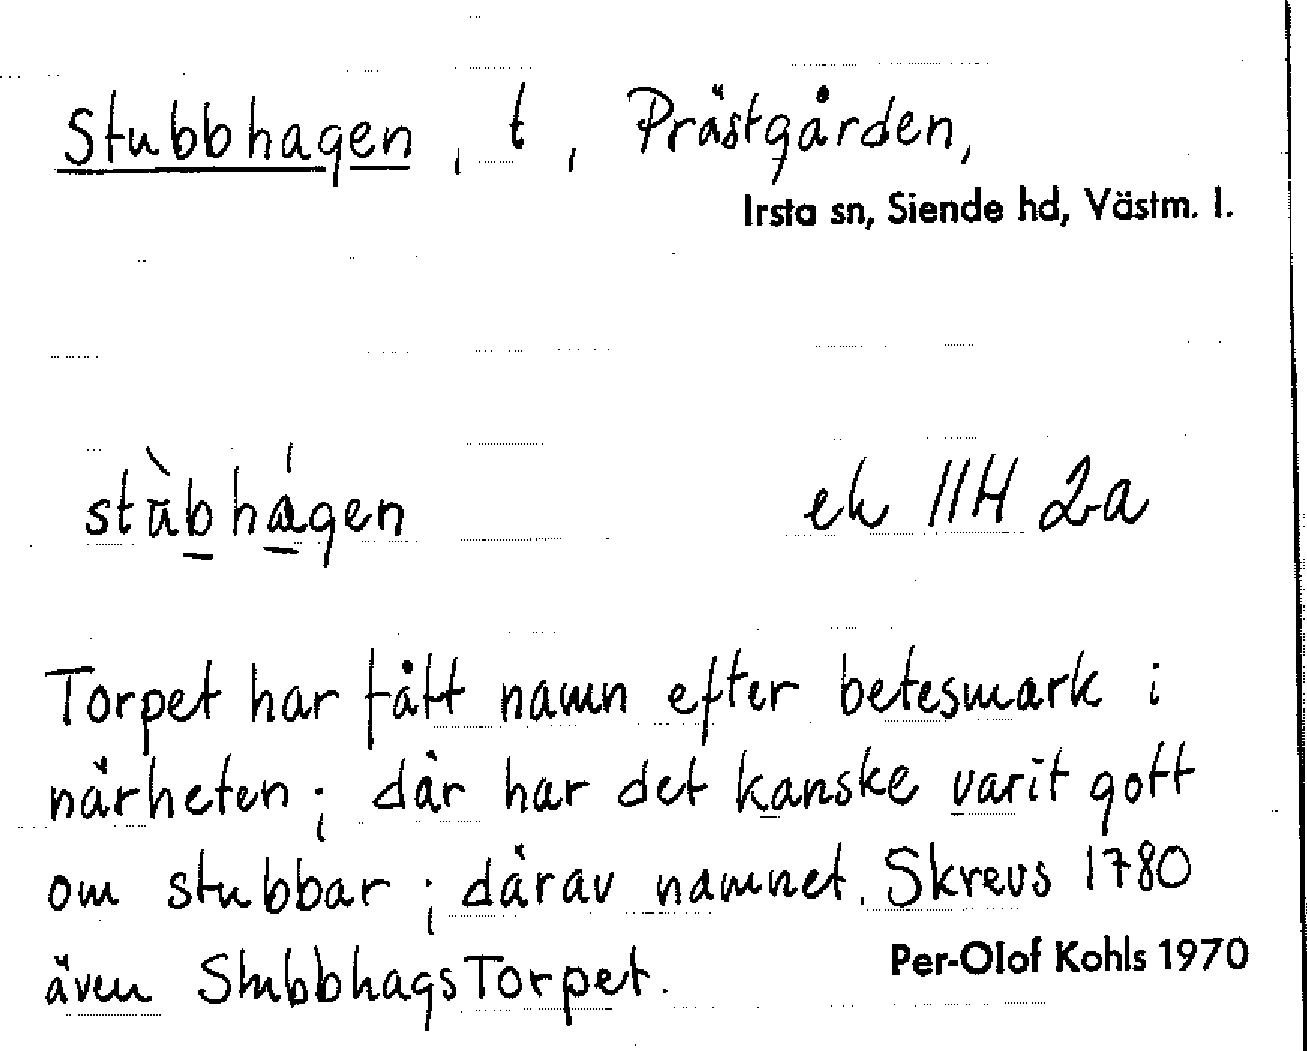 Stubbhagen, t, Prästgården,
Irsta sn, Siende hd, Västm. l.
stùbhágen ek 11H 2a
Torpet har fått namn efter betesmark i
närheten; där har det kanske varit gott
om stubbar; därav namnet. Skrevs 1780
även StubbhagsTorpet.
Per-Olof Kohls 1970